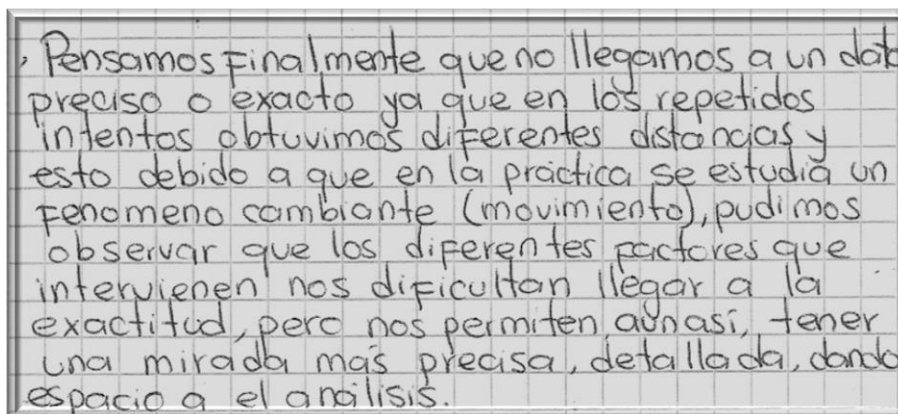 . Pensamos Finalmente que no llegamos a un dato
preciso o exacto ya que en los repetidos
intentos obtuvimos diferentes distancias y
esto debido a que en la práctica se estudia un
Fenomeno cambiante (movimiento), pudimos
observar que los diferentes factores que
intervienen nos dificultan llegar a la
exactitud, pero nos permiten aún así, tener
una mirada más precisa, detallada, dando
espacio a el análisis.